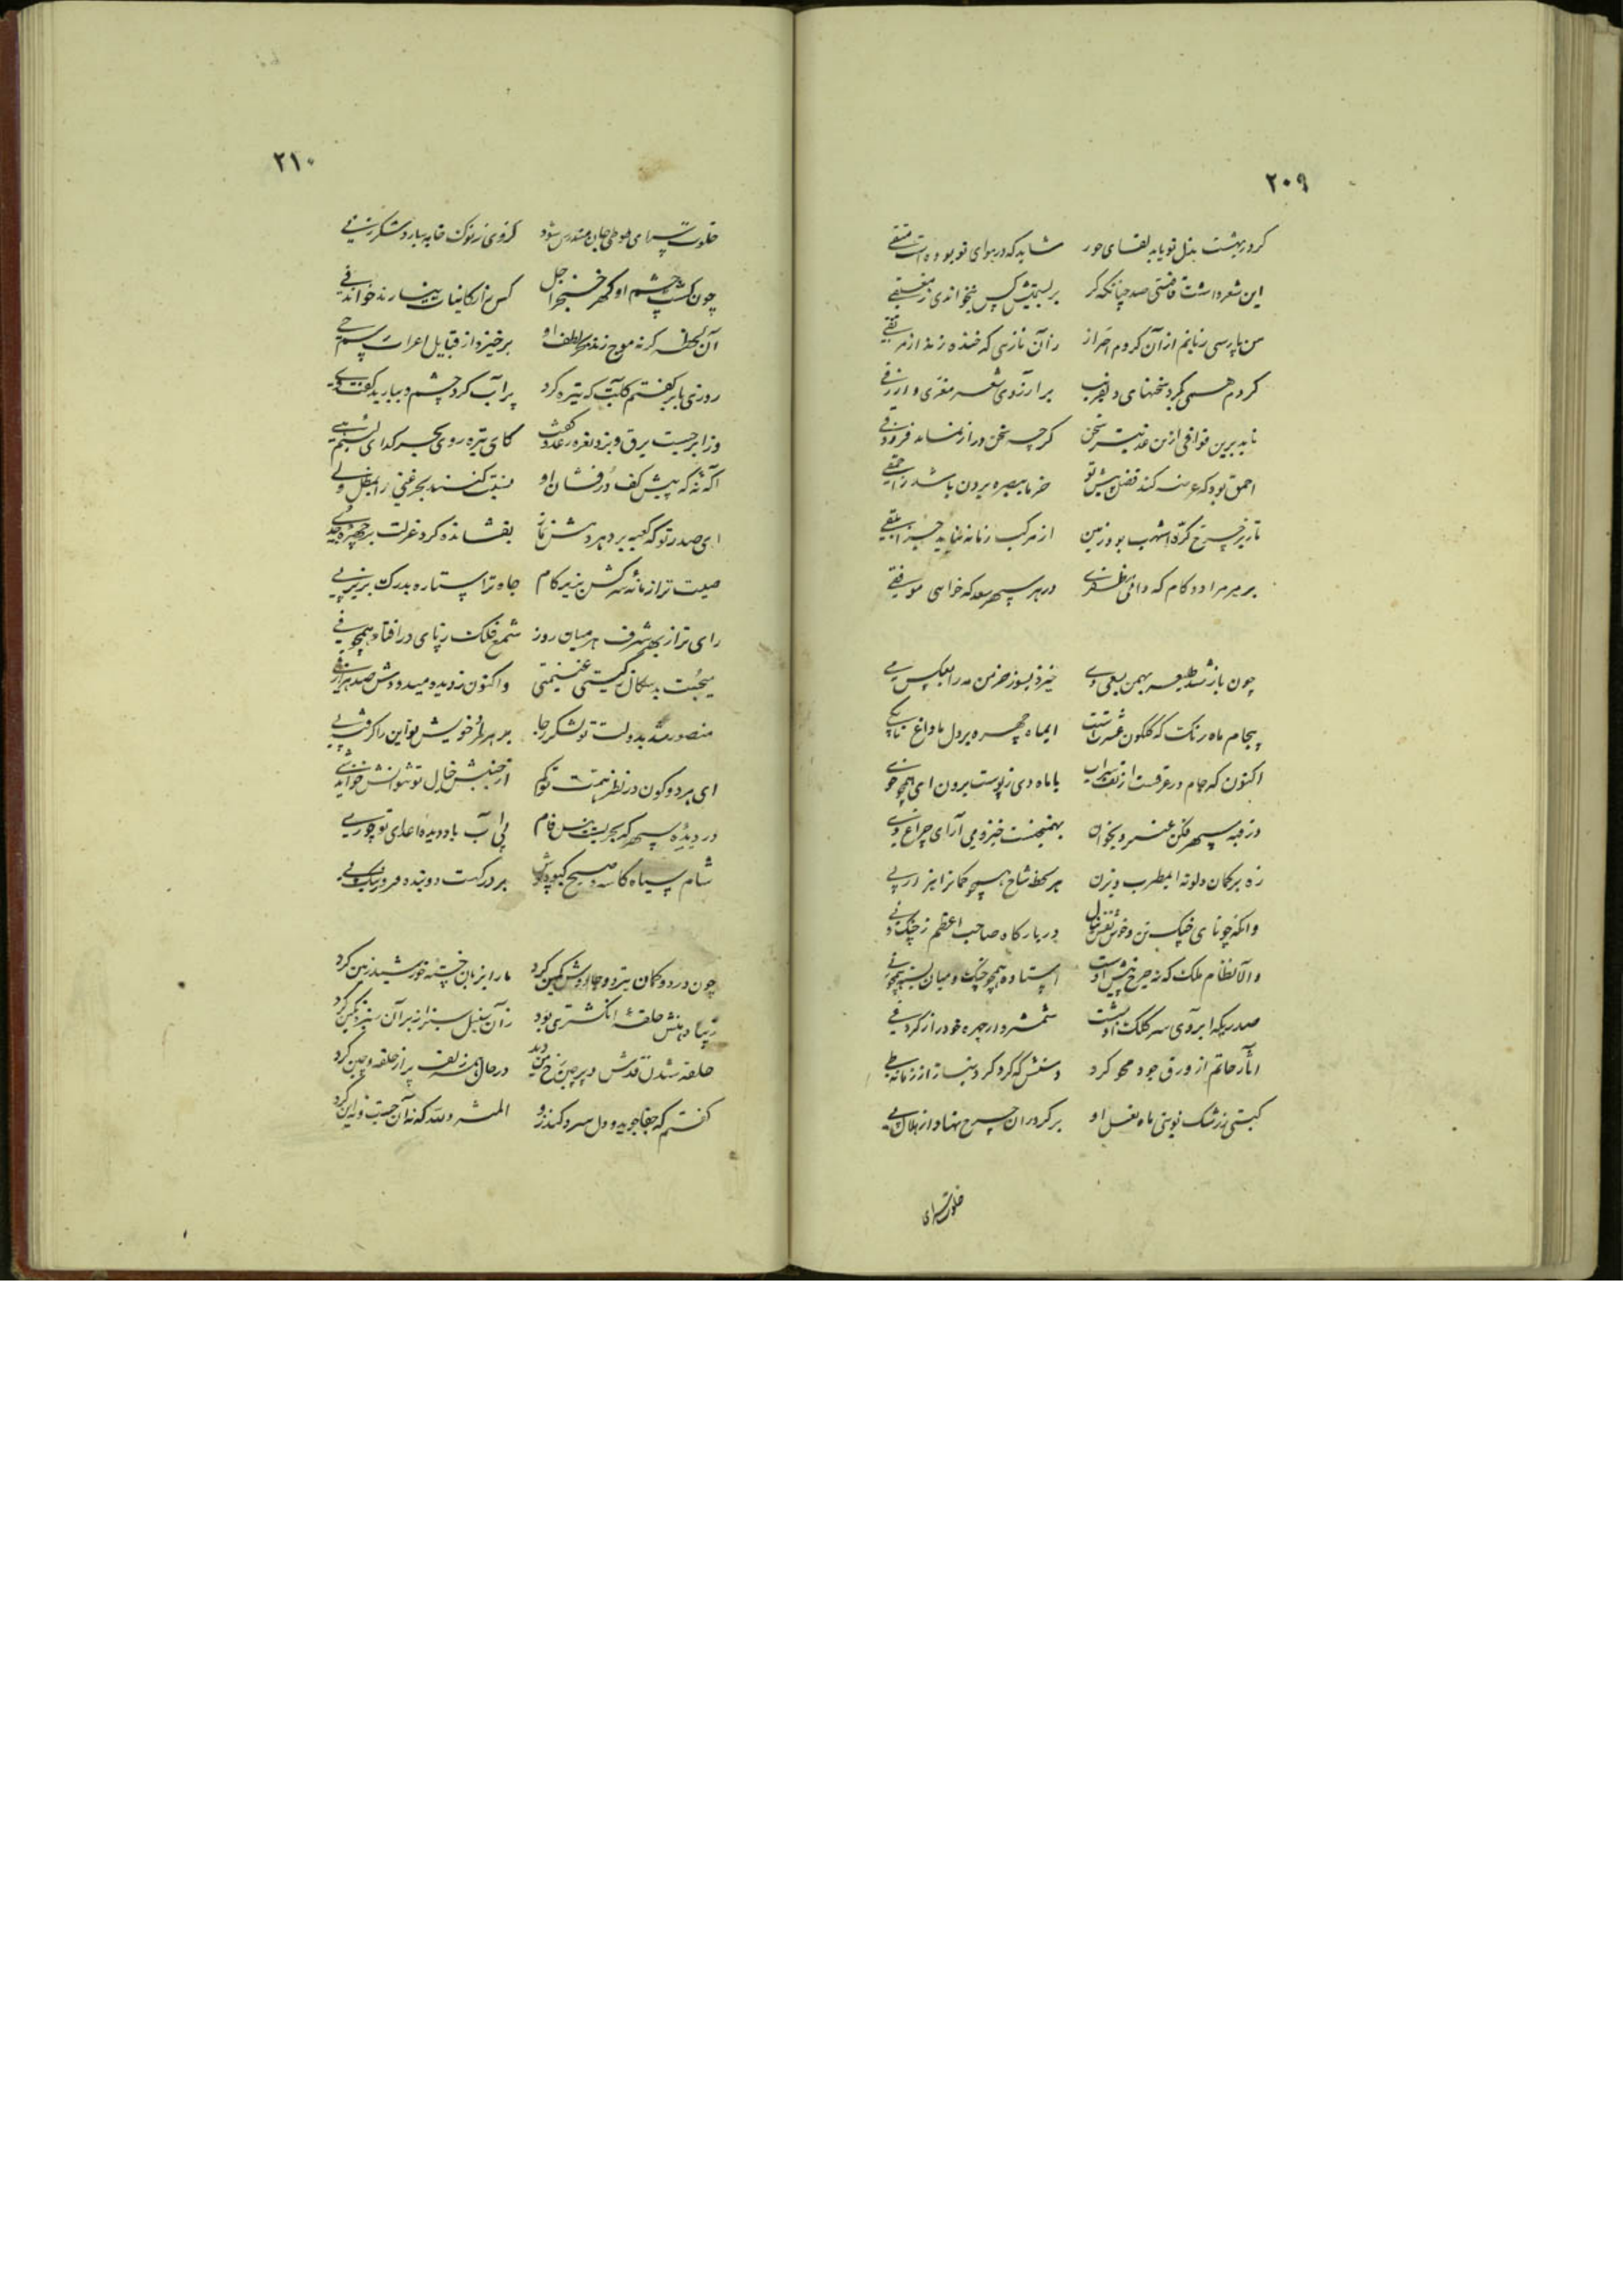 ۲۰۹
گر در بهشت بذل تو یابد لقای حور شاید که در هوای تو بوده است متقی
این شعر داشت قافیتی صد چنانکه گر بر کس نخواندی ز
من پارسی زبانم از آن کردم احتراز زآن تازیی که خنده زند از مر
کردم همی بگرد سخنهای برآرزوی شعر معزی و ازرقی
ناید برین قوافی ازین عذبتر سخن گر چه سخن دراز نماند فرزدقی
احمق بود که عرضه کند فضل پیش تو خرما ببصره بردن باشد ز احمقی
تا زیر چرخ کره اشهب بود زمین از مرکب زمانه نیاید جز ابلقی
بر هر مراد و کام که دانی مظفری در هر سپهر سعد که خواهی موفقی
چون باز شد طلیعه بهمن بسعی دی خیز و بسوز خرمن مه را بعکس می
پیجام ماه رنگ که گلگون عشرتست ایماه چهره بر دل ما داغ تا بکی
اکنون که جام در عرقست از تف شراب با ماه دی ز پوست برون آی همچو
در قبه سپهر فکن و بخوان بهمنجنه است خیز و می آرای چراغ ری
زه بر کمان دلونه ایمطرب و بزن هر لحظه شاخ همچو کمانرا بز در پی
وانگه چو نای خیک تن و خوش نفس در بارگاه صاحب اعظم ز چنگ و نی
والا نظام ملک که نه چرخ پیش اوست استاده همچو چنگ و میان بسته همچو نی
صدریکه ابروی سر کلک او بشست شمشیروار چهره خود را ز گرد فی
آثار حاتم از ورق جود محو کرد دستش که گرد کرد بساط از زمانه طی
گیتی ز رشک توسنی ماه نعل او بر گرد ران چرخ نهاد از هلال کی
خلوت‌سرای
۲۱۰
خلوت‌سرای طوطی جان مندرس شود گر وی ز نوک خامه ببارد شکر ز فی
چون گشت چشم او گهر خنجر اجل کس را ز کائنات نیارند خواند فی
آن لحظه گر نه موج زند بحر لطف او برخیزد از قبایل اعراب اسم حی
روزی بابر گفتم کآبت که تیره کرد پر آب کرد چشم و ببارید گفت وی
وز ابر جست برق و بزد نعره رعد و گفت کای تیره روی بحر گدای
آگه نه که پیش کف درفشان او نسبت کنند بحر غنی را
ای صدر تو که کعبه برد بر درش نماز بفشانده گرد عزلت بر چهره جدی
صیت ترا زمانه سرکش بزیر گام جاه ترا ستاره بدرگ بزیر پی
رای تر از بهر شرف هر میان روز شمع فلک ز پای در افتاد همچو فی
میجست بدسگال ز گیتی غنیمتی واکنون ز دیده میدودش صد هزار
منصور شد بدولت تو لشکر رجا بر هر مراد خویش تو این را کرفت پی
ای هر دو کون در نظر همت تو کم از جنبش خیال تو نتوانش خواند شی
در دیده سپهر که بحریست نیل فام بی آب باد دیده اعدای تو چو ری
شام سیاه کاسه و صبح کبودپوش بر درگهت دو بنده مرزوق یک
چون درد دو کمان تیر و دو جادوش کمین کرد ما را بزبان خسته خورشید زمین کرد
زیبا دهنش حلقه انگشتری بود زآن سنبل سبز از بر آن سبزه نگین کرد
حلقه شدن قدش و پر چین رخ من دید در حال بنفشه زلف پر از حلقه و چین کرد
گفتم که جفا جوید و دل سرد کند زو المنة لله که نه آن جست و نه این کرد